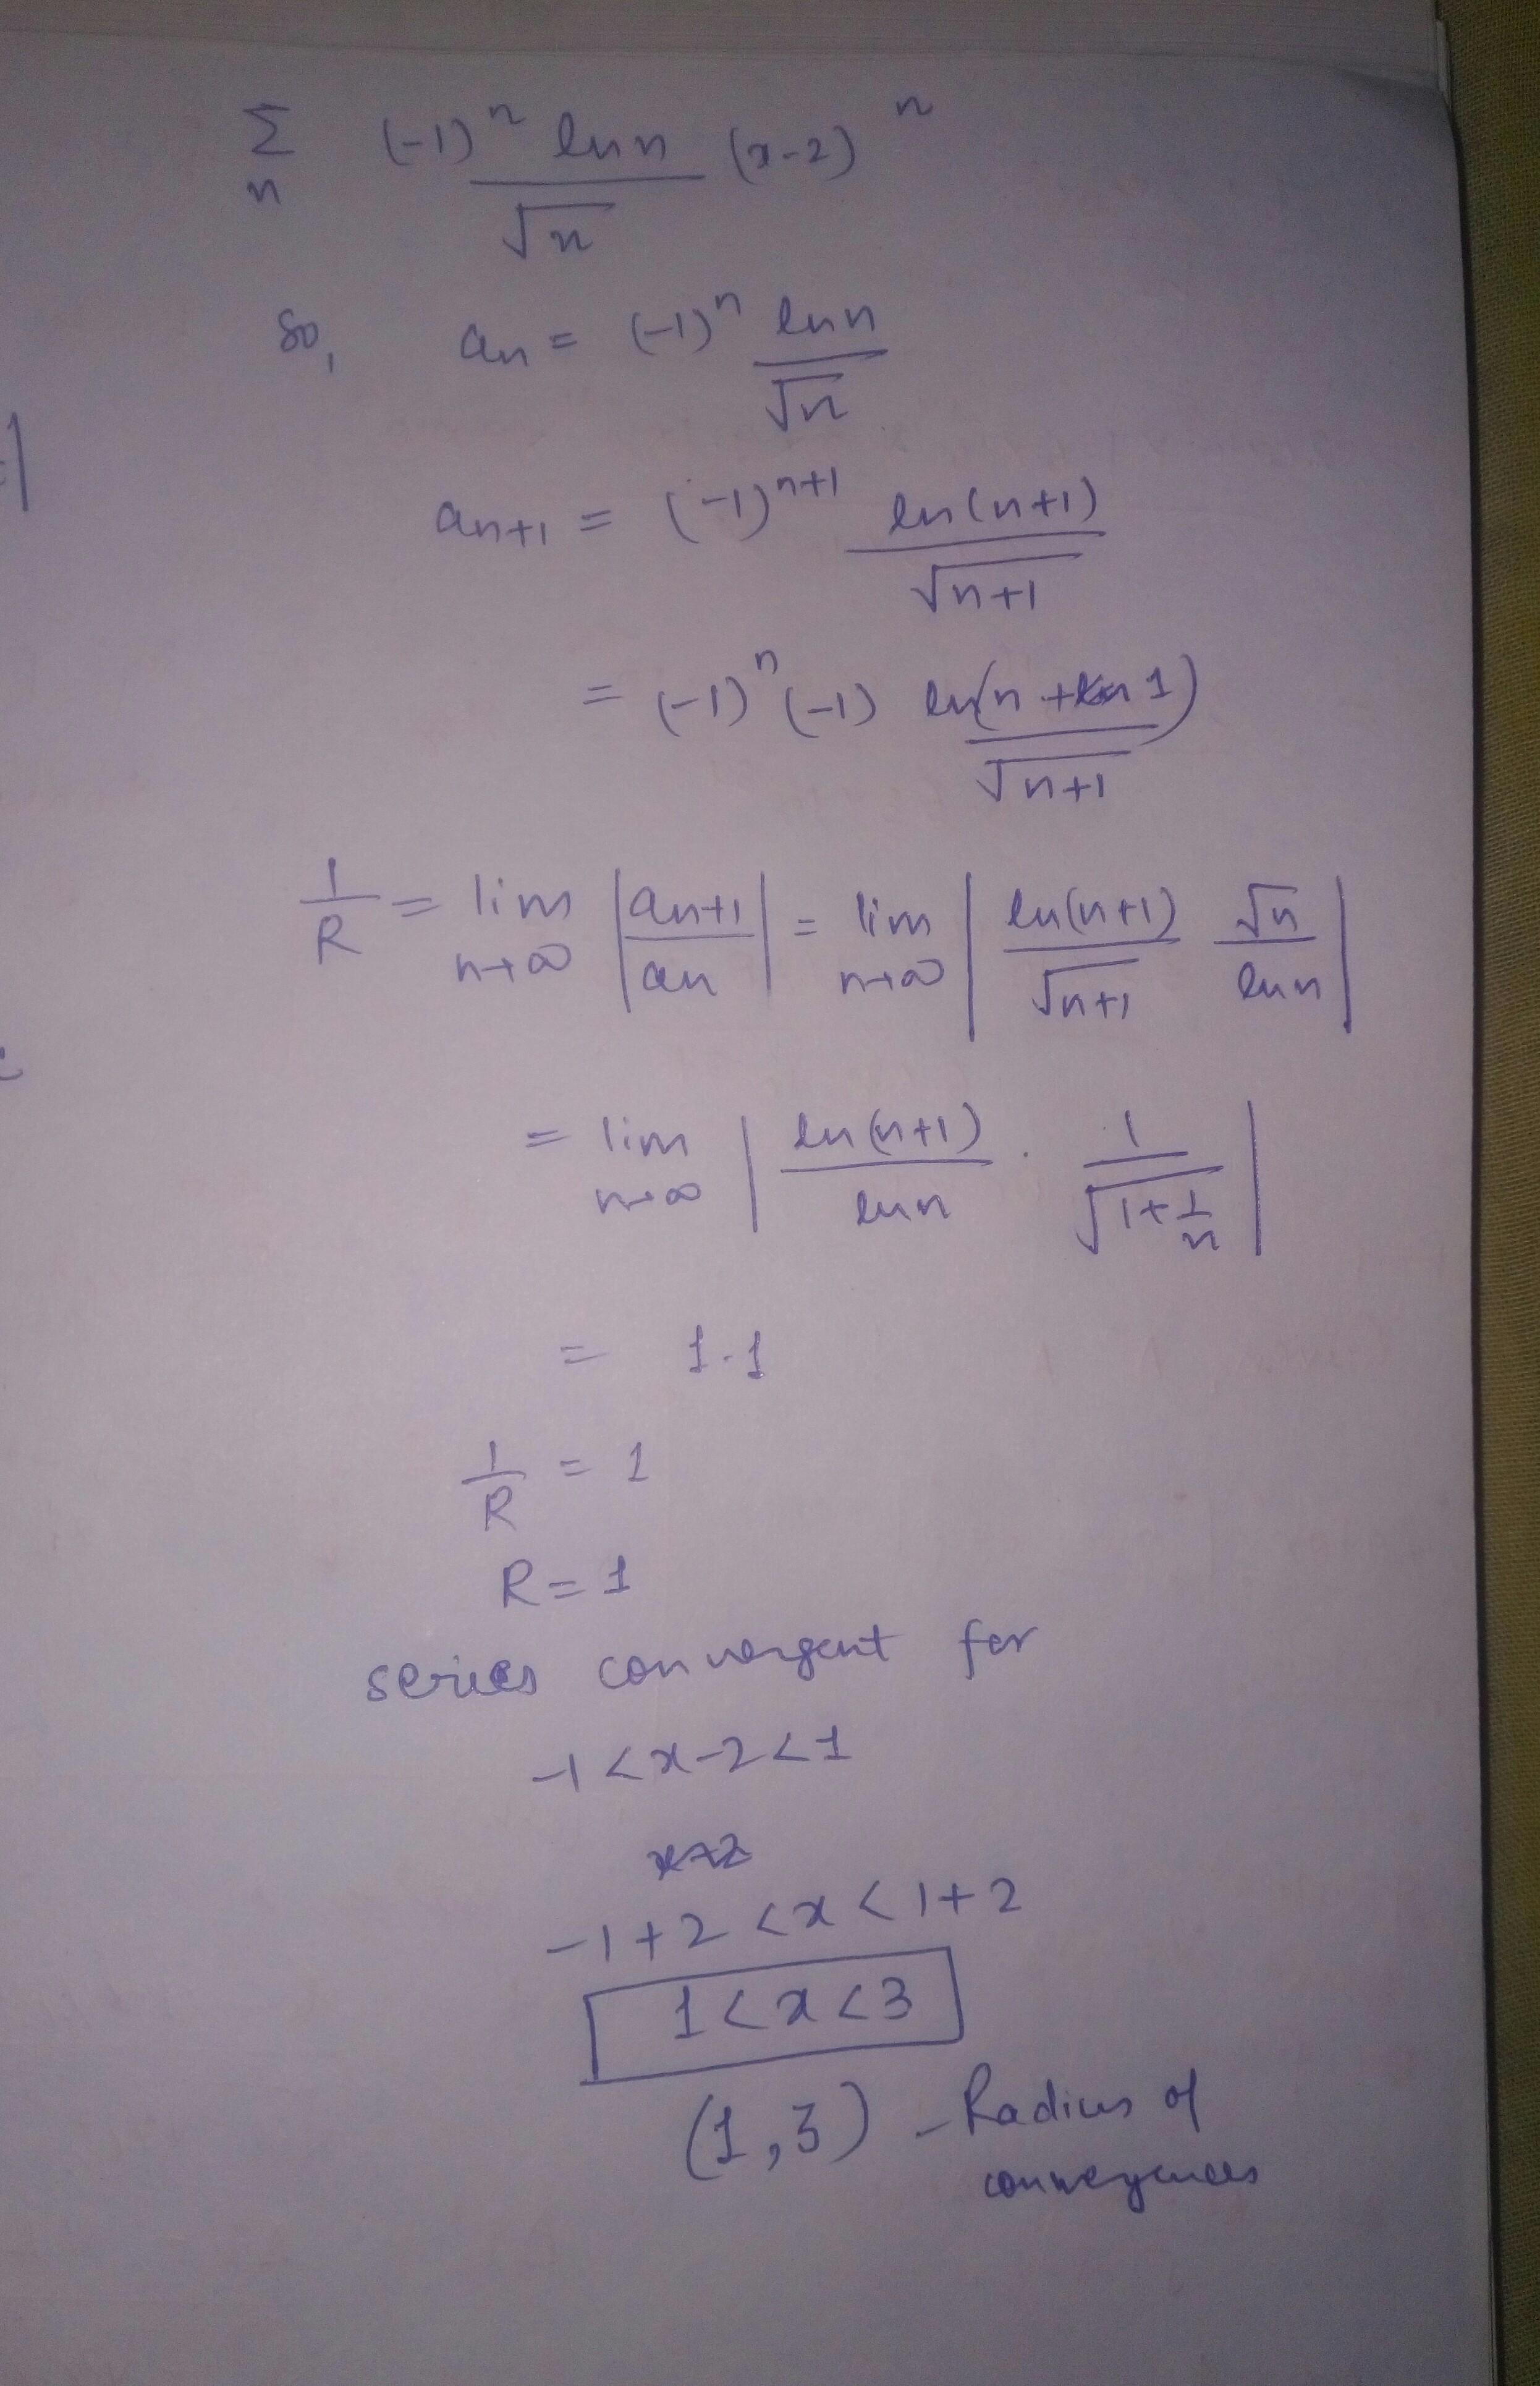 Σ (-1)ⁿ ln n (x-2)ⁿ
n √n
So, an = (-1)ⁿ ln n
√n
an+1 = (-1)ⁿ⁺¹ ln(n+1)
√n+1
= (-1)ⁿ (-1) ln(n + 1)
√n+1
1/R = lim n→∞ |an+1/an| = lim n→∞ | ln(n+1)/√n+1 √n/ln n |
= lim n→∞ | ln(n+1)/ln n · 1/√1+1/n |
= 1.1
1/R = 1
R = 1
series convergent for
-1 < x-2 < 1
-1+2 < x < 1+2
1 < x < 3
(1,3) - Radius of
convergences